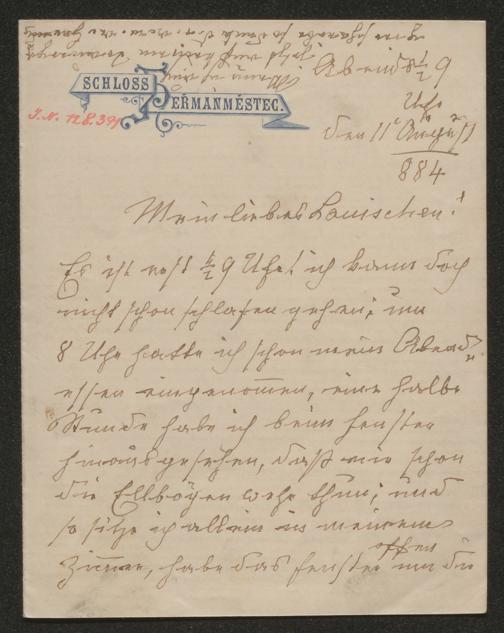 SCHLOSS
HERMANMĚSTEC.
J.N. 128.391
Abend ½ 9
Uhr
den 11t August
884
Mein liebes Louischen!
Es ist erst ½ 9 Uhr! ich kann doch
nicht schon schlafen gehen; um
8 Uhr hatte ich schon mein Abend„
essen eingenommen, eine halbe
Stunde habe ich beim Fenster
hinausgesehen, daß mir schon
die Ellbögen wehe thun; und
so sitze ich allein in meinem
Zimmer, habe das Fenster offen um die